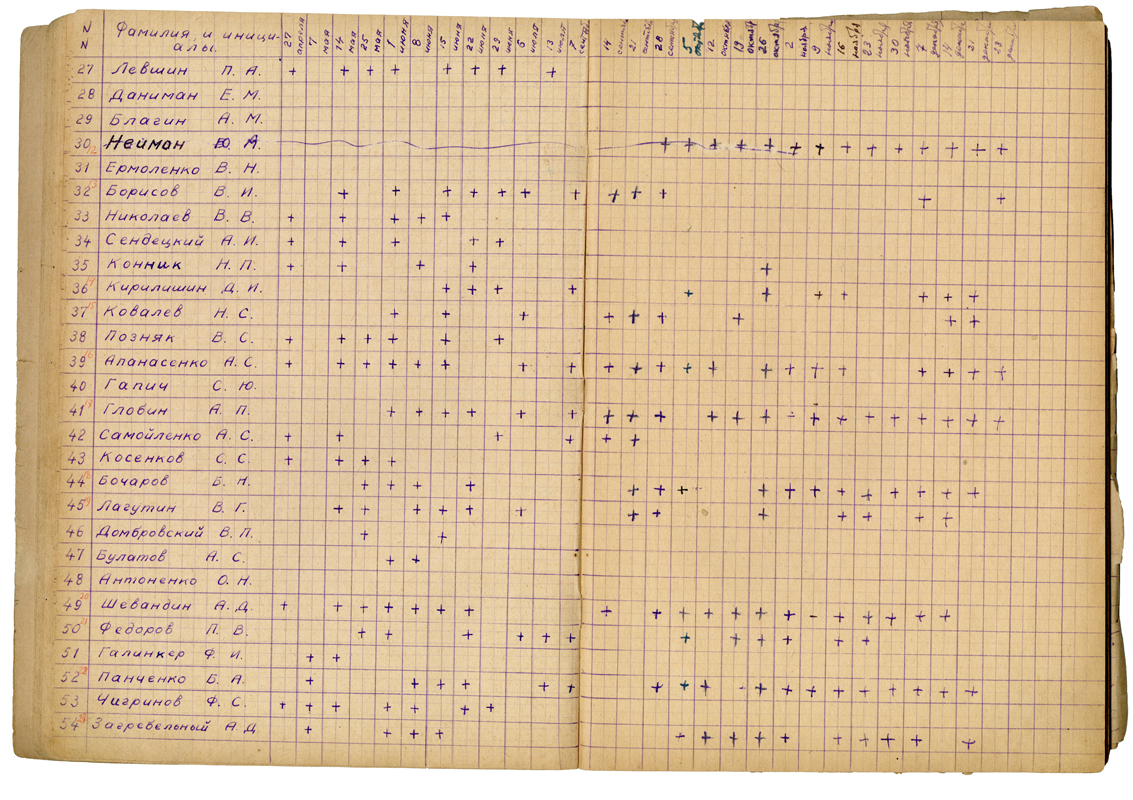 N N Фамилия и иници-
алы.
27 апреля 7 мая 14 мая 25 мая 1 июня 8 июня 15 июня 22 июня 29 июня 5 июля 13 июля 7 сентяб 14 сентяб 21 28 5 октября 12 октября 19 октября 26 октября 2 ноября 9 ноября 16 ноября 23 ноября 30 ноября 7 декабр 14 декабр 21 декабр 28 декабр
27 Левшин П. А. + + + + + + + +
28 Даниман Е. М.
29 Благин А. М.
30 12 Нейман Ю. А. + + + + + + + + + + + + + +
31 Ермоленко В. Н.
32 13 Борисов В. И. + + + + + + + + + + + +
33 Николаев В. В. + + + + +
34 Сендецкий А. И. + + + + +
35 Конник Н. П. + + + + +
36 14 Кирилишин Д. И. + + + + + + + + + + +
37 15 Ковалев Н. С. + + + + + + + + +
38 Позняк В. С. + + + + + +
39 16 Апанасенко А. С. + + + + + + + + + + + + + + + + + + + + +
40 Гапич С. Ю.
41 Гловин А. П. + + + + + + + + + + + + - + + + + + + + +
42 Самойленко А. С. + + + + + +
43 Косенков С. С. + + + +
44 Бочаров Б. Н. + + + + + + + + + + + + + + + +
45 Лагутин В. Г. + + + + + + + + + + + + +
46 Домбровский В. П. + +
47 Булатов А. С. + +
48 Антоненко О. Н.
49 20 Шевандин А. Д. + + + + + + + + + + + + + + - + + + + +
50 Федоров П. В. + + + + + + + + + + + +
51 Галинкер Ф. И. + +
52 Панченко Б. А. + + + + + + + + + - + + + + + + + + +
53 Чигринов Ф. С. + + + + + + +
54 Загребельный А. Д + + + + + + + + + + + + + +